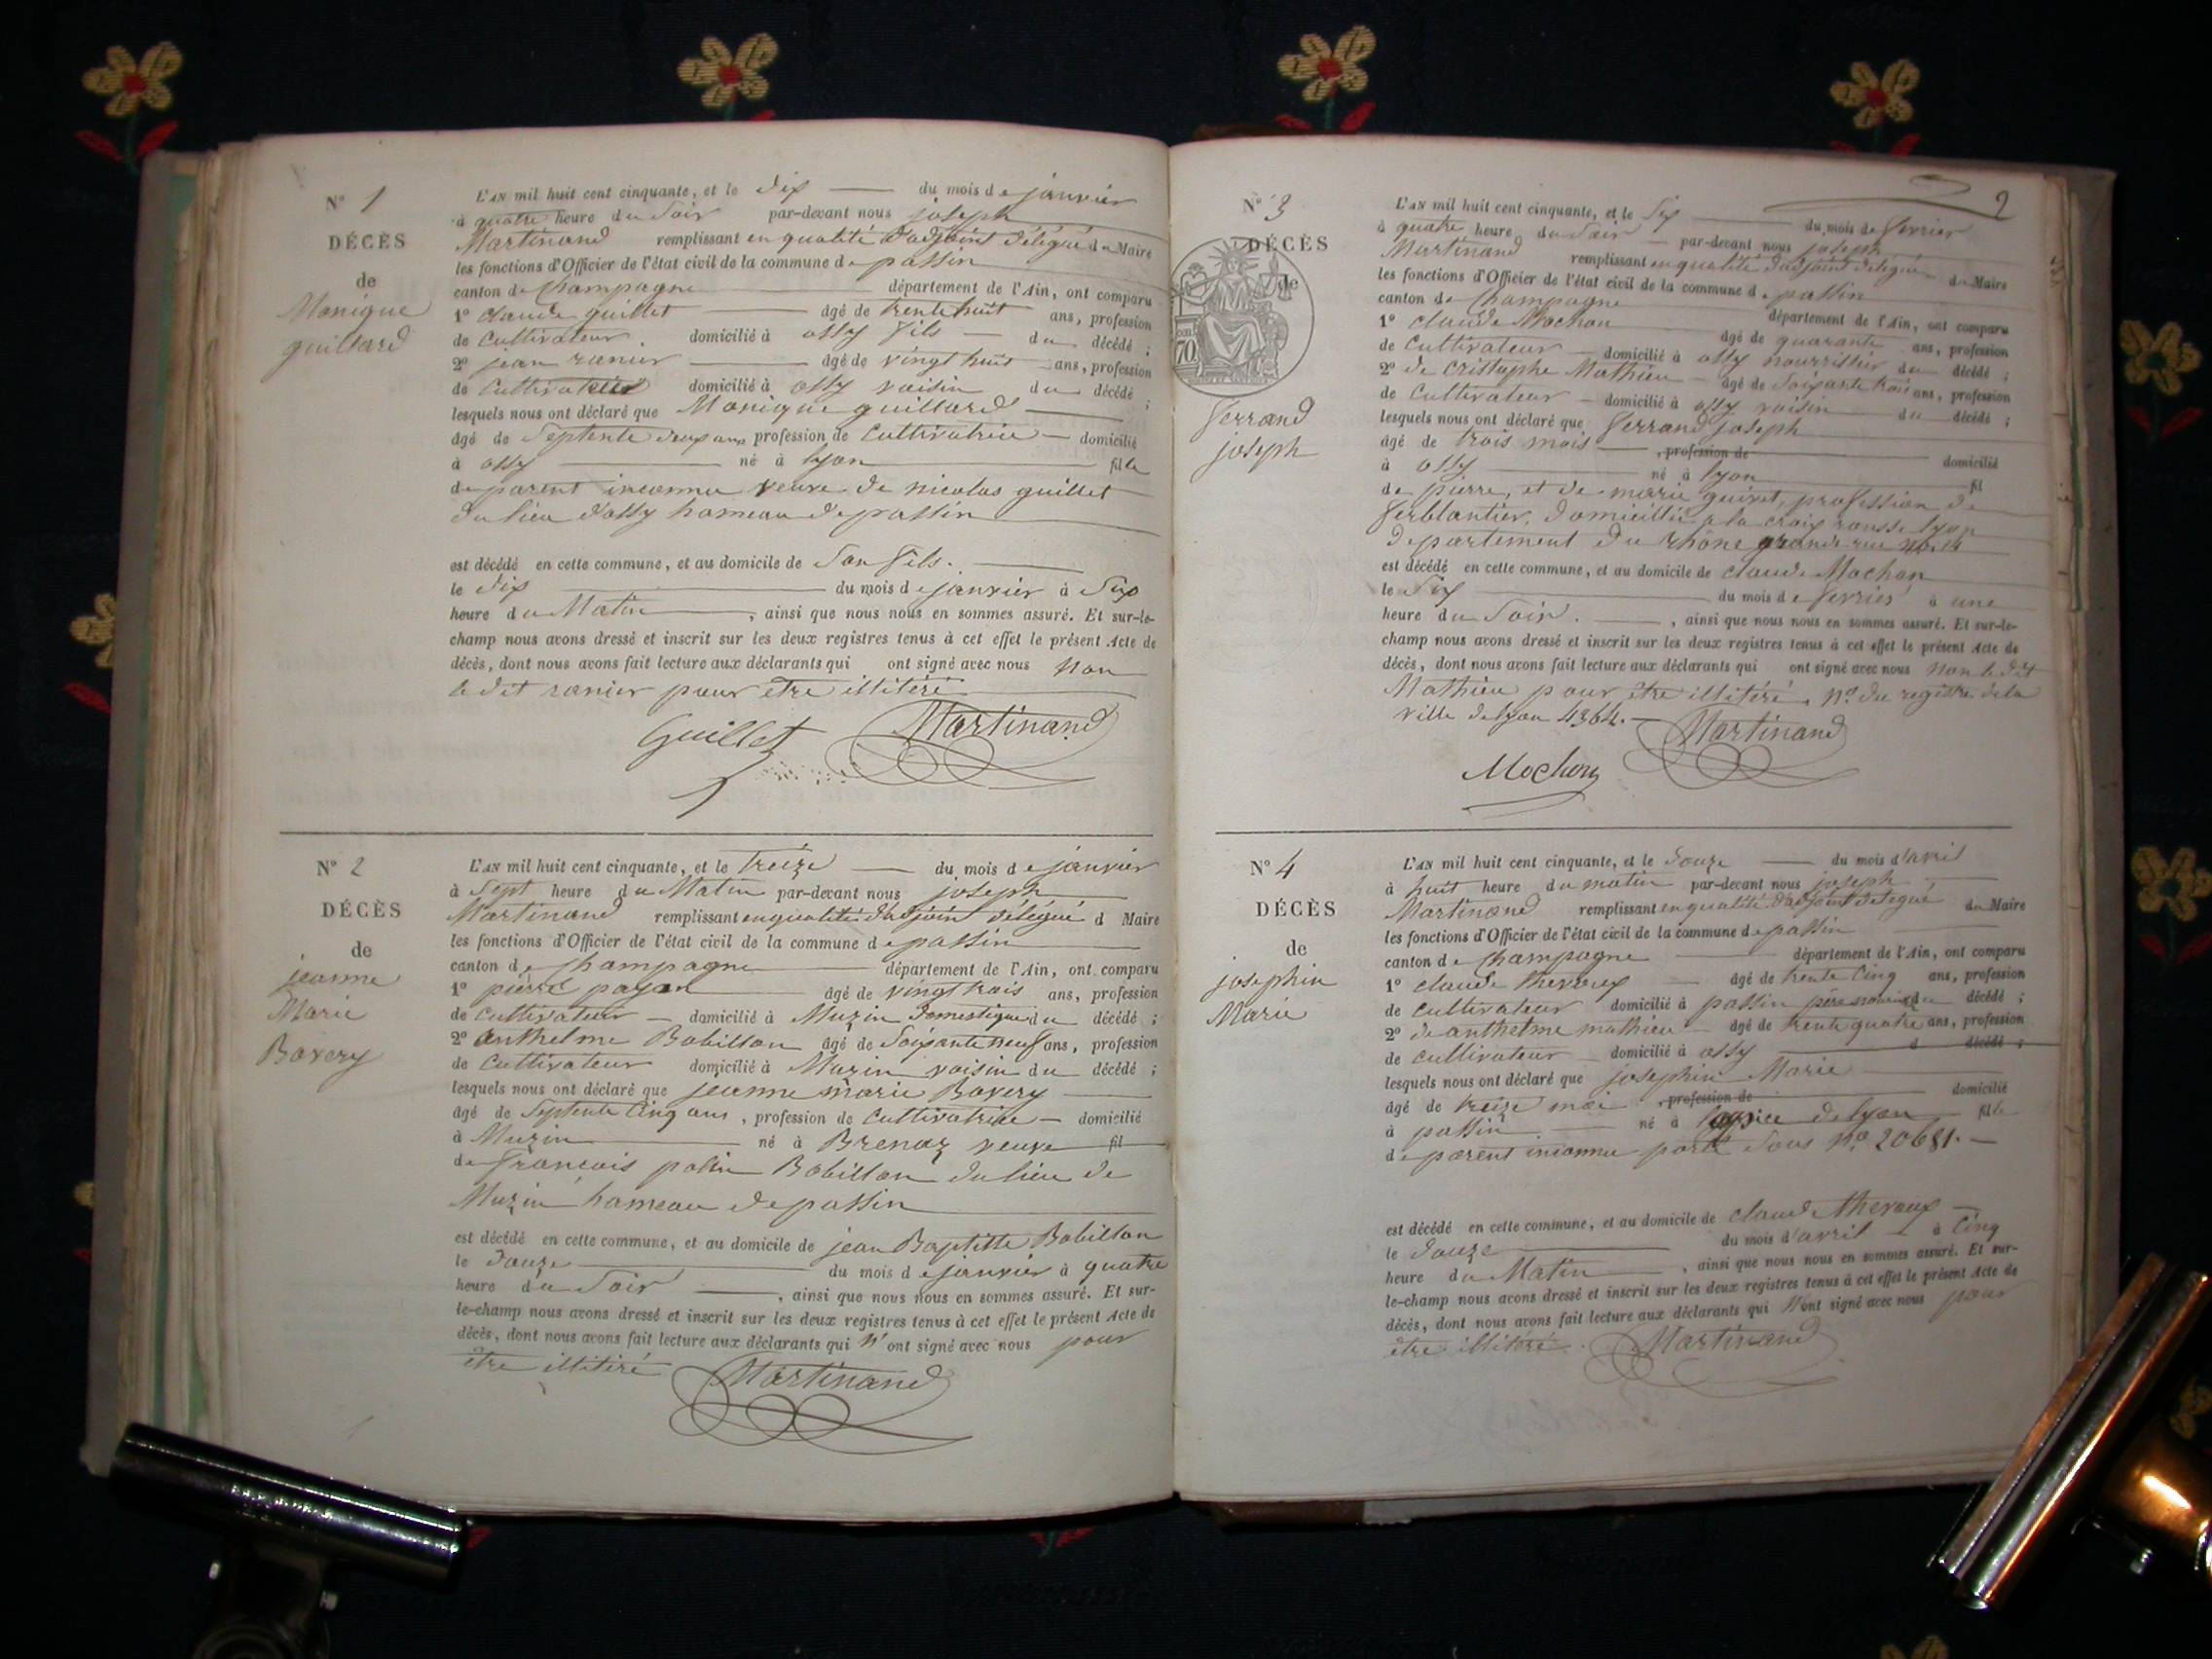 N° 1
DÉCÈS
de
Monique
guillard
L'AN mil huit cent cinquante, et le dix du mois de janvier
à quatre heure du Soir par-devant nous joseph
Martinand remplissant en qualité d'adjoint délégué du Maire
les fonctions d'Officier de l'état civil de la commune de passin
canton de Champagne département de l'Ain, ont comparu
1° claude guillet âgé de trente huit ans, profession
de Cultivateur. domicilié à ossy fils du décédé ;
2° jean ranier âgé de vingt huit ans, profession
de Cultivateur domicilié à ossy voisin du décédé ;
lesquels nous ont déclaré que Monique guillard
âgé de Septente deux ans profession de Cultivatrice domicilié
à ossy né à lyon fille
de parent inconnu veuve de nicolas guillet
du lieu d'ossy hameau de passin
est décédé en cette commune, et au domicile de Son fils.
le dix du mois de janvier à Six
heure du Matin, ainsi que nous nous en sommes assuré. Et sur-le-
champ nous avons dressé et inscrit sur les deux registres tenus à cet effet le présent Acte de
décès, dont nous avons fait lecture aux déclarants qui ont signé avec nous Non
le dit ranier pour être illitéré
Guillet Martinand
N° 2
DÉCÈS
de
jeanne
Marie
Bovery
L'AN mil huit cent cinquante, et le treize du mois de janvier
à Sept heure du Matin par-devant nous joseph
Martinand remplissant en qualité d'adjoint délégué d Maire
les fonctions d'Officier de l'état civil de la commune de passin
canton de Champagne département de l'Ain, ont comparu
1° pierre payan âgé de vingt trois ans, profession
de Cultivateur domicilié à Muzin domestique du décédé ;
2° Anthelme Bobillon âgé de Soixante neuf ans, profession
de Cultivateur domicilié à Muzin voisin du décédé ;
lesquels nous ont déclaré que jeanne marie Bovery
âgé de Septente Cinq ans, profession de Cultivatrice domicilié
à Muzin né à Brenaz veuve fil
de francois Bobillon du lieu de
Muzin hameau de passin
est décédé en cette commune, et au domicile de jean Baptitte Bobillon
le douze du mois de janvier à quatre
heure du Soir, ainsi que nous nous en sommes assuré. Et sur-
le-champ nous avons dressé et inscrit sur les deux registres tenus à cet effet le présent Acte de
décès, dont nous avons fait lecture aux déclarants qui n'ont signé avec nous pour
être illitiré
Martinand
2
N° 3
DÉCÈS
de
ferrand
joseph
70
L'AN mil huit cent cinquante, et le Six du mois de fevrier
à quatre heure du Soir par-devant nous joseph
Martinand remplissant en qualité d'adjoint délégué du Maire
les fonctions d'Officier de l'état civil de la commune de passin
canton de Champagne département de l'Ain, ont comparu
1° claude Mochon âgé de quarante ans, profession
de Cultivateur domicilié à ossy nourrissier du décédé ;
2° de cristophe Mathieu âgé de Soixante trois ans, profession
de Cultivateur domicilié à ossy voisin du décédé ;
lesquels nous ont déclaré que ferrand joseph
âgé de trois mois, profession de domicilié
à ossy né à lyon fil
de pierre, et de marie guivet, profession de
ferblantier, domicillié a la croix rousse lyon
departement du rhône grande rue
est décédé en cette commune, et au domicile de claude Mochon
le Six du mois de fevrier à une
heure du Soir., ainsi que nous nous en sommes assuré. Et sur-le-
champ nous avons dressé et inscrit sur les deux registres tenus à cet effet le présent Acte de
décès, dont nous avons fait lecture aux déclarants qui ont signé avec nous Non le dit
Mathieu pour être illitéré, n° du registre de la
ville de lyon 4364.
Martinand
Mochon
N° 4
DÉCÈS
de
josephin
Marie
L'AN mil huit cent cinquante, et le douze du mois d'avril
à huit heure du matin par-devant nous joseph
Martinand remplissant en qualité d'adjoint délégué du Maire
les fonctions d'Officier de l'état civil de la commune de passin
canton de Champagne département de l'Ain, ont comparu
1° claude thevoux âgé de trente Cinq ans, profession
de cultivateur domicilié à passin père du décédé ;
2° de anthelme mathieu âgé de trente quatre ans, profession
de cultivateur domicilié à ossy d décédé ;
lesquels nous ont déclaré que josephin Marie
âgé de treize moi, profession de domicilié
à passin né à de lyon fille
de parent inconnu porté Sous n° 20681.
est décédé en cette commune, et au domicile de claude thevoux
le douze du mois d'avril à Cinq
heure du Matin, ainsi que nous nous en sommes assuré. Et sur-
le-champ nous avons dressé et inscrit sur les deux registres tenus à cet effet le présent Acte de
décès, dont nous avons fait lecture aux déclarants qui N'ont signé avec nous pour
être illitéré.
Martinand